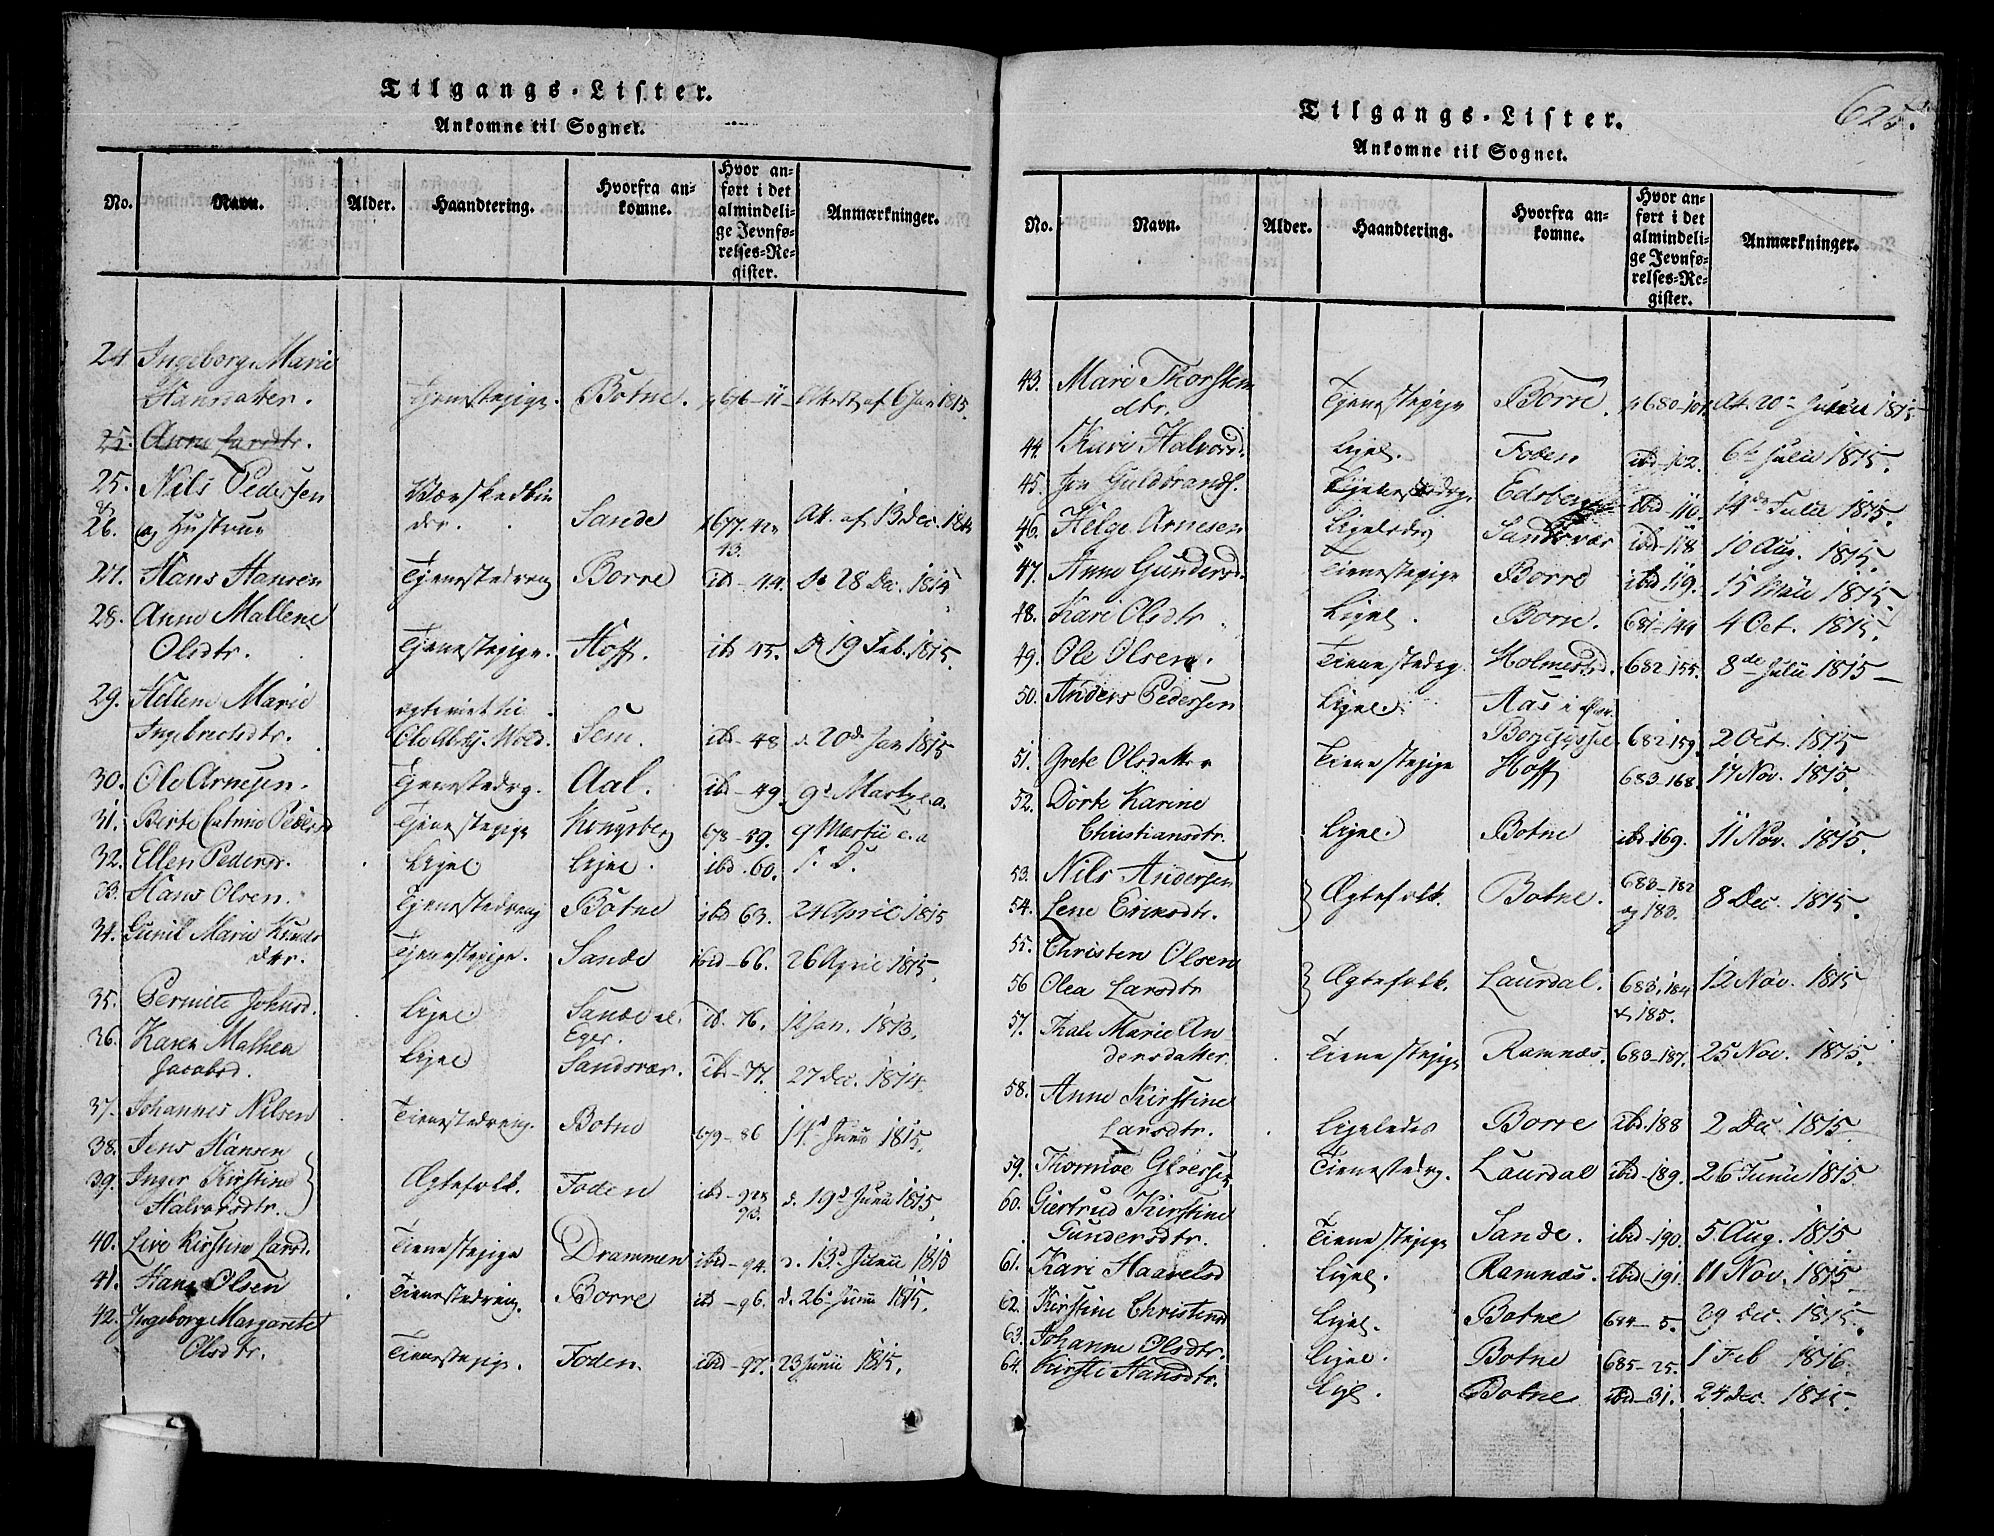 Tilgangs-Lister.
Ankomne til Sognet.
No. Navn. Alder. Haandtering. Hvorfra an= komne. Hvor an= ført i det almindeli= ge Jevnfø= relses=Re= gister. Anmærkninger.
24 Ingeborg Marie
Hansdatter. Tjenestepige. Botne. 676-11- Attest af 6 Jan 1815.
25. Anne Larsdtr.
25. Nils Pedersen
& 26. og Hustrue Sande 677. 42 43. At. af 13 Dec. 1814
27. Hans Hansen Tjenestedreng Borre ib - 44. Do 28 Dec. 1814
28. Anne Mallene
Olsdtr. Tjenestepige. Hoff. ib 45. D 19 Feb. 1815.
29. Hellene Marie
Ingebrectsdtr. Sem. ibd- 48 d. 20de Jan 1815
30. Ole Arnesen. Tjenestedrg. Aal. ibd- 49. 9d Martz e.a.
31. Berte Catrine Peders Tjenestepige Kongsberg 678-59. 9 Martii e.a
32. Ellen Pedersd. Ligel Ligel. ibd. 60. D.
33. Hans Olsen. Tjenestedreng Botne ibd 63. 24 April 1815
34. Gunil Marie Knuds
dtr. Tjenestepige. Sande ibd-66. 26 April 1815.
35. Pernite Johnsd. Ligel Eger. ib. 76. 12 Jan. 1813.
36. Karen Mathea
Jacobsd. Ligel Sandsvær. ibd-77. 27 Dec. 1814.
37. Johannes Nilsen Tienestedreng. Botne 679-86 14d Junii 1815.
38. Jens Hansen
39. Inger Kirstine
Halvorsdtr. Ægtefolk. Foden ibd-92& 93. d. 19d Junii 1815.
40. Live Kirstine Larsd. Tienestepige Drammen ibd-94. d. 13d Junii 1815
41. Hans Olsen Tienestedreng. Borre ibd-96. d. 26d Junii 1815.
42. Ingeborg Margarete
Olsdtr. Tienestepige. Foden. ibd-97. 23 Junii 1815.
625.
Tilgangs-Lister.
Ankomne til Sognet.
No. Navn. Alder. Haandtering. Hvorfra an= komne. Hvor an= ført i det almindeli= ge Jevnfø= relses=Re= gister. Anmærkninger.
43. Mari Thorsten
dtr. Tjenestepige Borre. 680-101 At. 20 Junii 1815
44. Kari Halvorsd. Ligel. Foden ibd-102. 6te Julii 1815.
45. Jon Guldbrands. Tjenestedrg. ibd-110. 14de Julii 1815.
46. Helge Arnesen Ligeledes Sandsvær ibd-118 10 Aug. 1815.
47. Anne Gundersd. Tienestepige Borre ibd 119. 15 Maii 1815.
48. Kari Olsdtr. Ligel. Borre. 681-144 4 Oct. 1815.
49. Ole Olsen. Tienestedrg. Holmestrd. 682-155. 8de Julii 1815-
50. Anders Pedersen Ligel. Aas i
51. Grete Olsdatter Tienestepige Hoff 682-159. 2 Oct. 1815
683-168. 17 Nov. 1815.
52. Dorte Karine
Christiansdtr. Ligel. Botne ibd 169. 11 Nov. 1815.
53. Nils Andersen
54. Lene Eriksdtr. Ægtefolk. Botne. 683-182 og 183. 8 Dec. 1815.
55. Christen Olsen
56 Olea Larsdtr Ægtefolk. Laurdal. 683, 184 & 185. 12 Nov. 1815
57. Thale Marie An
dersdatter. Tienestepige Ramnæs. 683-187. 25 Nov. 1815.
58. Anne Kirstine
Larsdtr. Ligeledes Borre ibd. 188 2 Dec. 1815.
59. Thomas Tienestedrg. Laurdal ibd-189. 26 Junii 1815.
60. Giertrud Kirstine
Gundersdtr. Tienestepige Sande. ibd-190. 5 Aug. 1815
61. Kari Haavelsd Ligel. Ramnæs. ibd-191. 11 Nov. 1815
62. Kirstine Christensd Ligel. Botne 684-5. 29 Dec. 1815.
63. Johanne Olsdtr. Ligel. Botne 685-25. 1 Feb 1816.
64. Kirsti Hansdtr. Ligl. Botne ibd-31. 24 Dec. 1815.